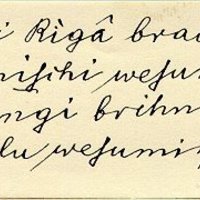 i Rìgâ brau
niſihi weſum
ngi brihn
lu weſumi